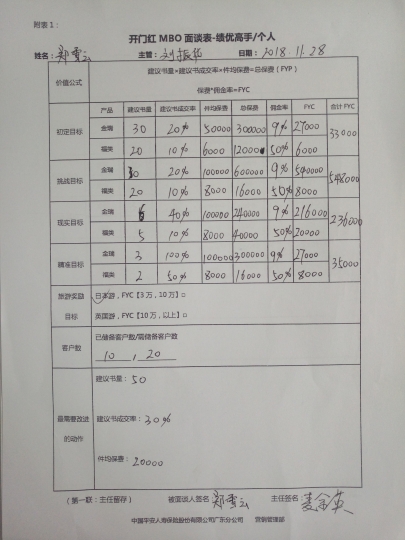 附表1：
开门红 MBO 面谈表-绩优高手/个人
姓名：郑雪云 主管：刘振华 日期：2018.11.28
价值公式 建议书量×建议书成交率×件均保费=总保费（FYP）
保费*佣金率=FYC
产品 建议书量 建议书成交率 件均保费 总保费 佣金率 FYC 合计 FYC
初定目标 金瑞 30 20% 50000 300000 9% 27000 33000
福类 20 10% 6000 12000 50% 6000
挑战目标 金瑞 30 20% 100000 600000 9% 540000 548000
福类 20 10% 8000 16000 50% 8000
现实目标 金瑞 6 40% 100000 240000 9% 216000 236000
福类 5 10% 8000 40000 50% 20000
精准目标 金瑞 3 100% 100000 300000 9% 27000 35000
福类 2 50% 8000 16000 50% 8000
旅游奖励 日本游，FYC【3万，10万】
目标 英国游，FYC【10万，以上】
客户数 已储备客户数/需储备客户数
10，20
建议书量：50
最需要改进 建议书成交率：30%
的动作
件均保费：20000
（第一联：主任留存） 被面谈人签名 郑雪云 主任签名：
中国平安人寿保险股份有限公司广东分公司 营销管理部